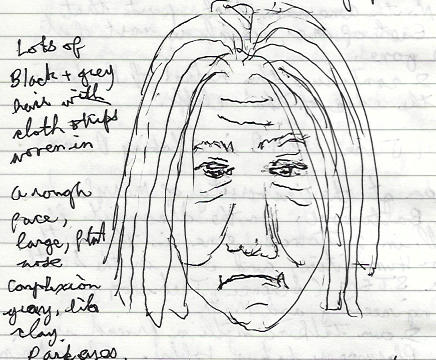 Lots of
Black + grey
hair with
cloth strips
woven in
a rough
face,
large, flat
nose
Complexion
grey, like
clay.
Dark eyes.